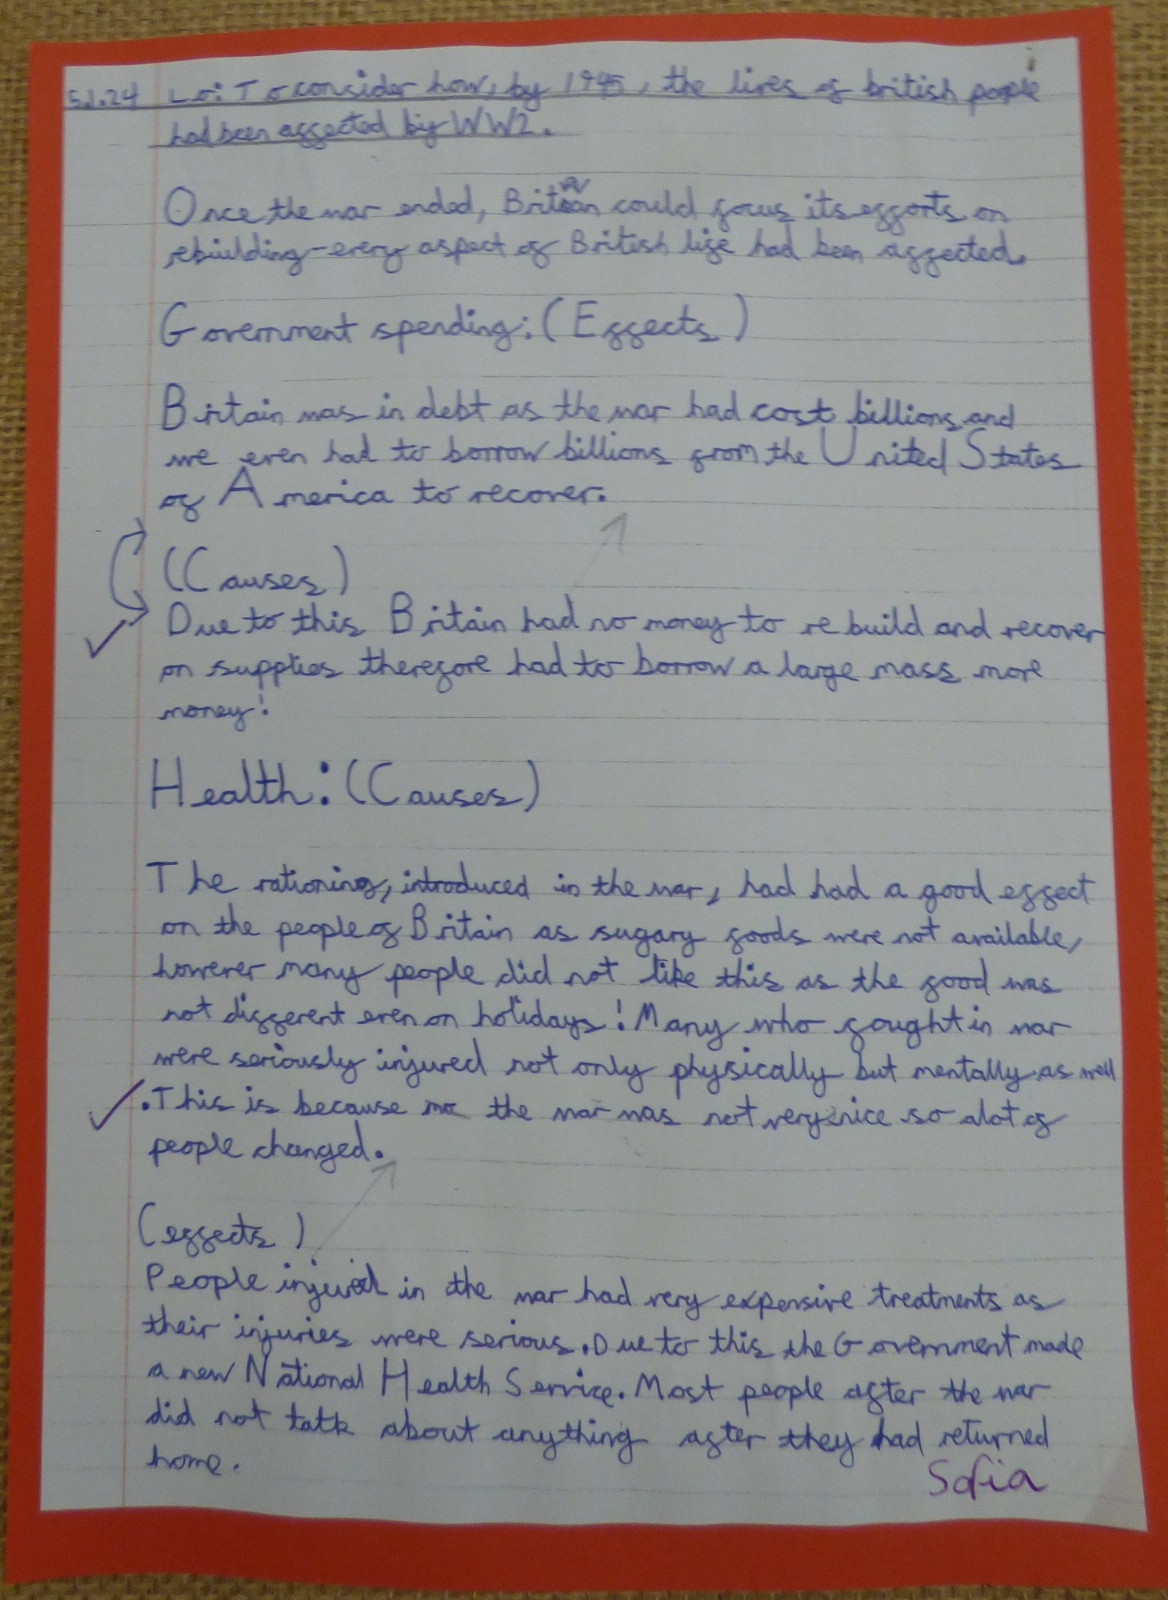 5.1.24 Lo: To consider how, by 1945, the lives of british people
had been affected by WW2.
Once the war ended, Britain could focus its efforts on
rebuilding-every aspect of British life had been affected.
Government spending: (Effects)
Britain was in debt as the war had cost billions and
we even had to borrow billions from the United States
of America to recover.
(Causes)
Due to this Britain had no money to re build and recover
on supplies therefore had to borrow a large mass more
money!
Health: (Causes)
The rationing, introduced in the war, had had a good effect
on the people of Britain as sugary foods were not available,
however many people did not like this as the food was
not different even on holidays! Many who fought in war
were seriously injured not only physically but mentally as well
. This is because the war was not very nice so alot of
people changed.
(effects)
People injured in the war had very expensive treatments as
their injuries were serious. Due to this the Government made
a new National Health Service. Most people after the war
did not talk about anything after they had returned
home.
Sofia